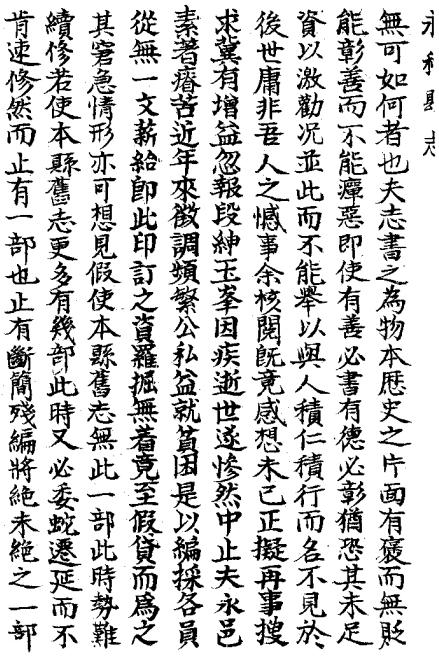 永和縣志
無可如何者也夫志書之為物本歷史之片面有褒而無貶
能彰善而不能癉惡即使有善必書有德必彰猶恐其未足
資以激勸況並此而不能舉以與人積仁積行而名不見於
後世庸非吾人之憾事余核閱既竟感想未已正擬再事搜
求冀有增益忽報段紳玉峯因疾逝世遂慘然中止夫永邑
素著瘠苦近年來徵調頻繁公私益就貧困是以編採各員
從無一文薪給即此印訂之資羅掘無着竟至假貸而爲之
其窘急情形亦可想見假使本縣舊志無此一部此時勢難
續修若使本縣舊志更多有幾部此時又必委蛇遷延而不
肯速修然而止有一部也止有斷簡殘編將絕未絕之一部